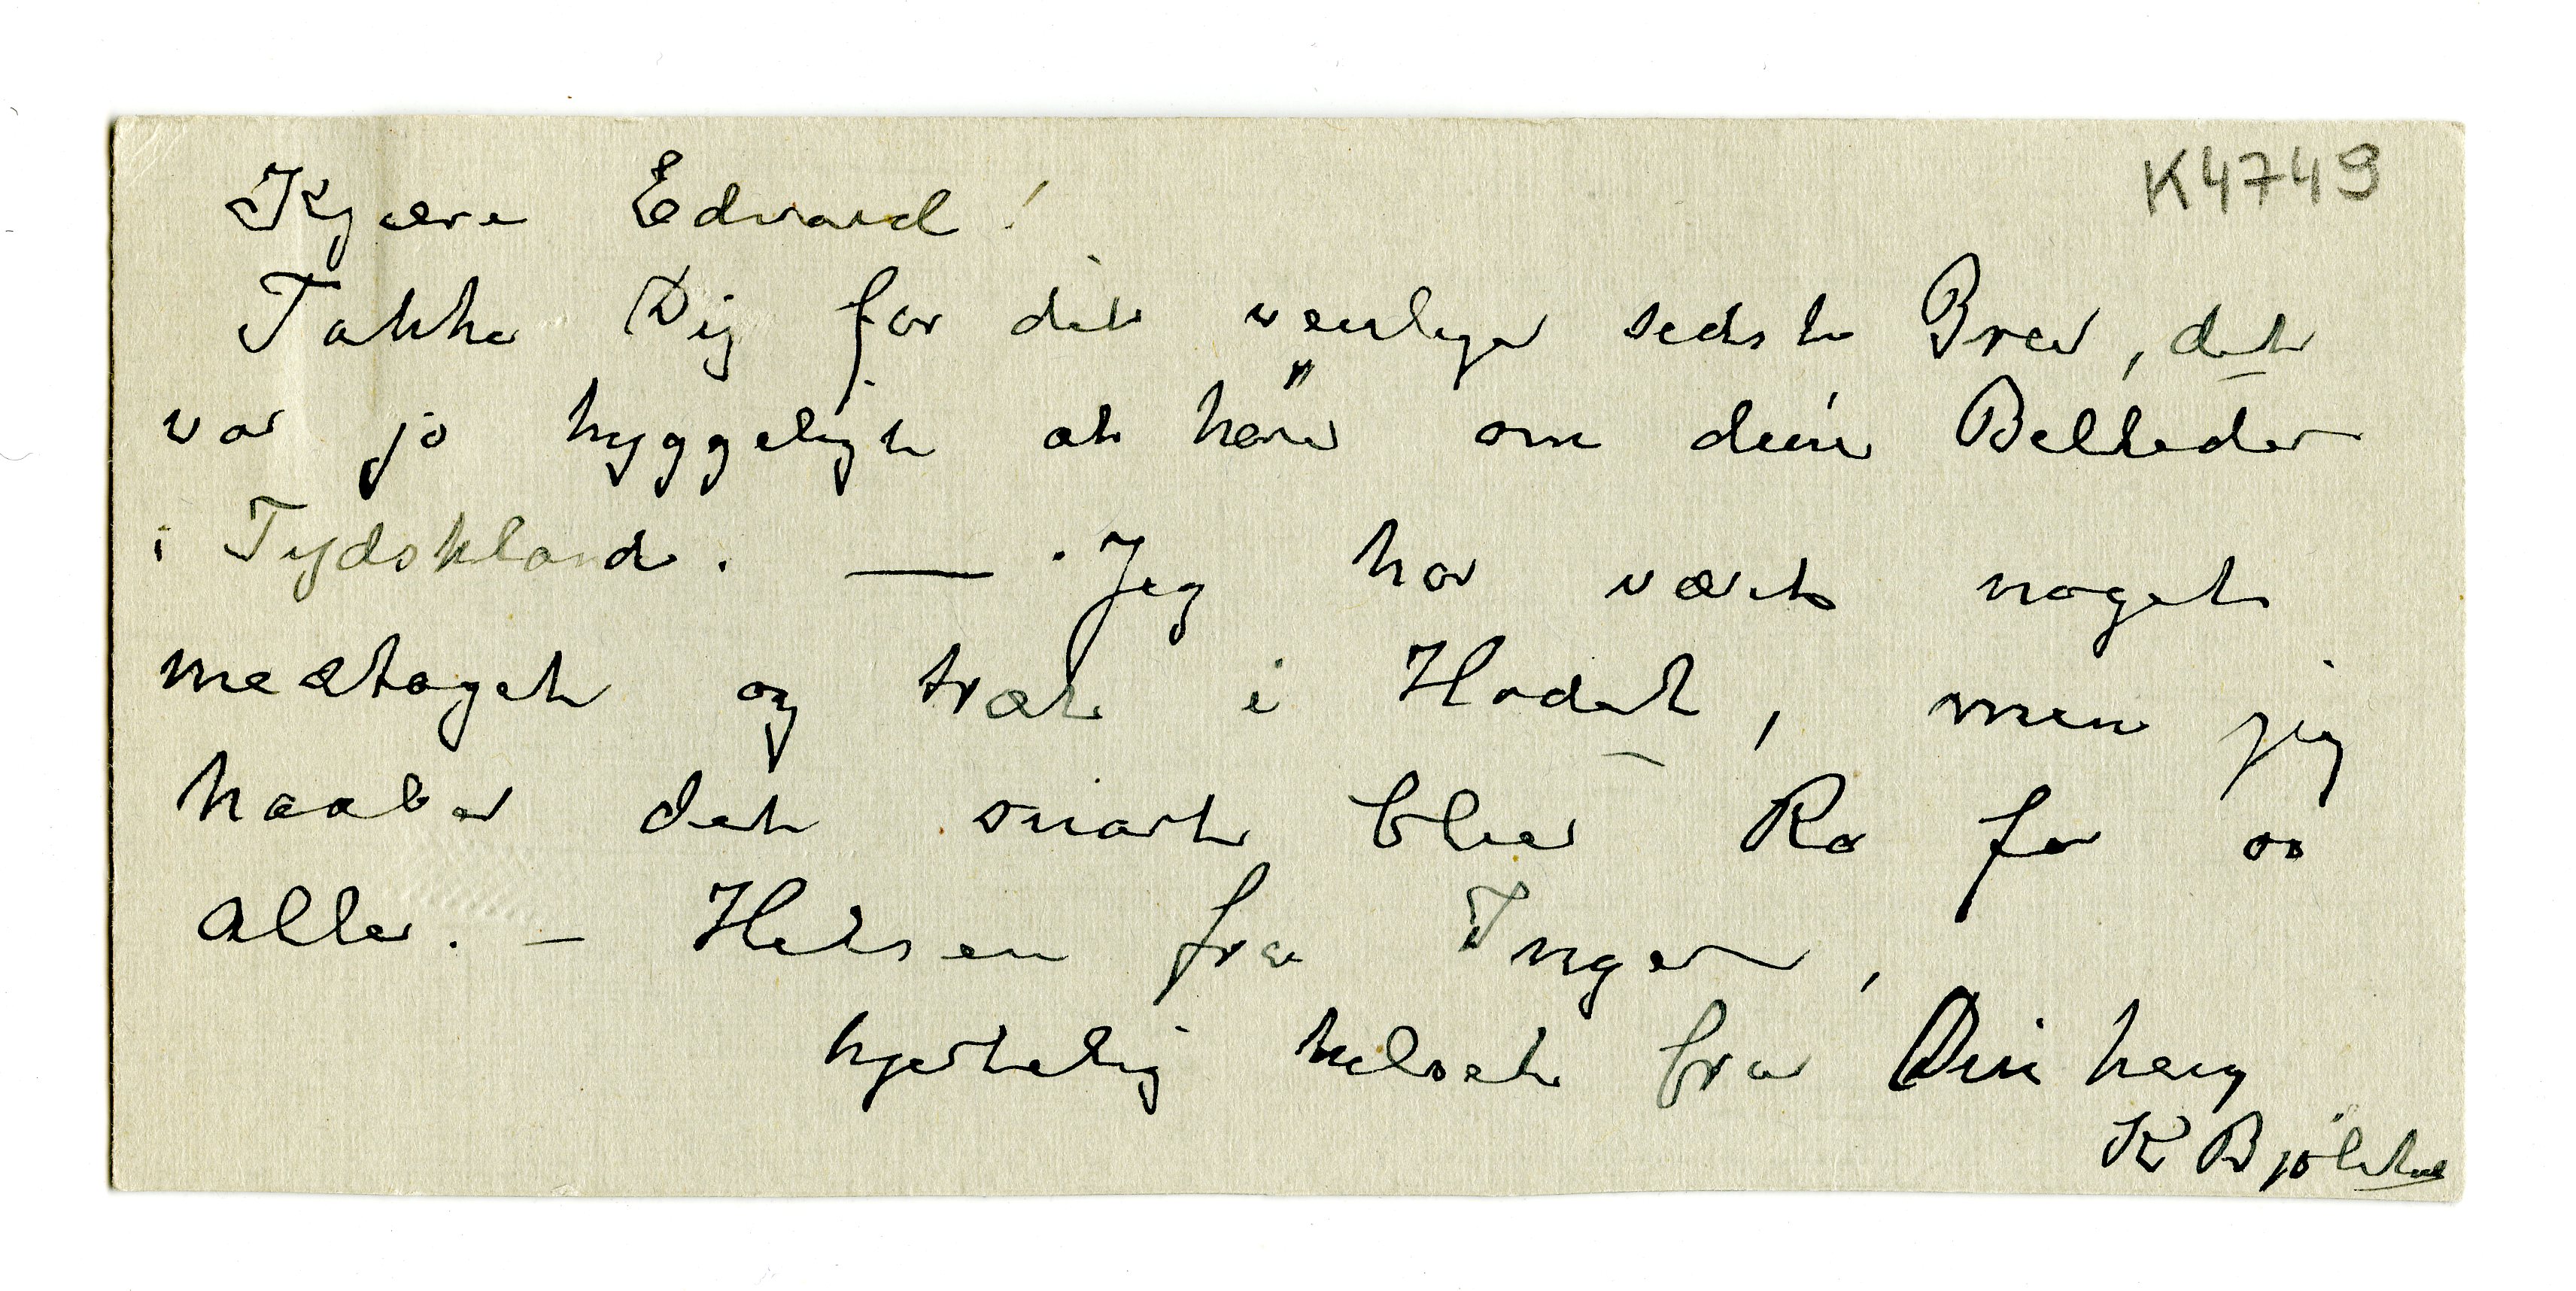 K4749
Kjære Edvard!
Takke Dig for dit venlige sidste Brev, det
var jo hyggeligt at høre om dine Belleder
i Tydskland. — Jeg har vært noget
medtaget og træt i Hodet, men jeg
haaber det snart blir Ro for os
alle. — Hilsen fra Inger,
hjertelig hilset fra Din heng
K Bjølstad